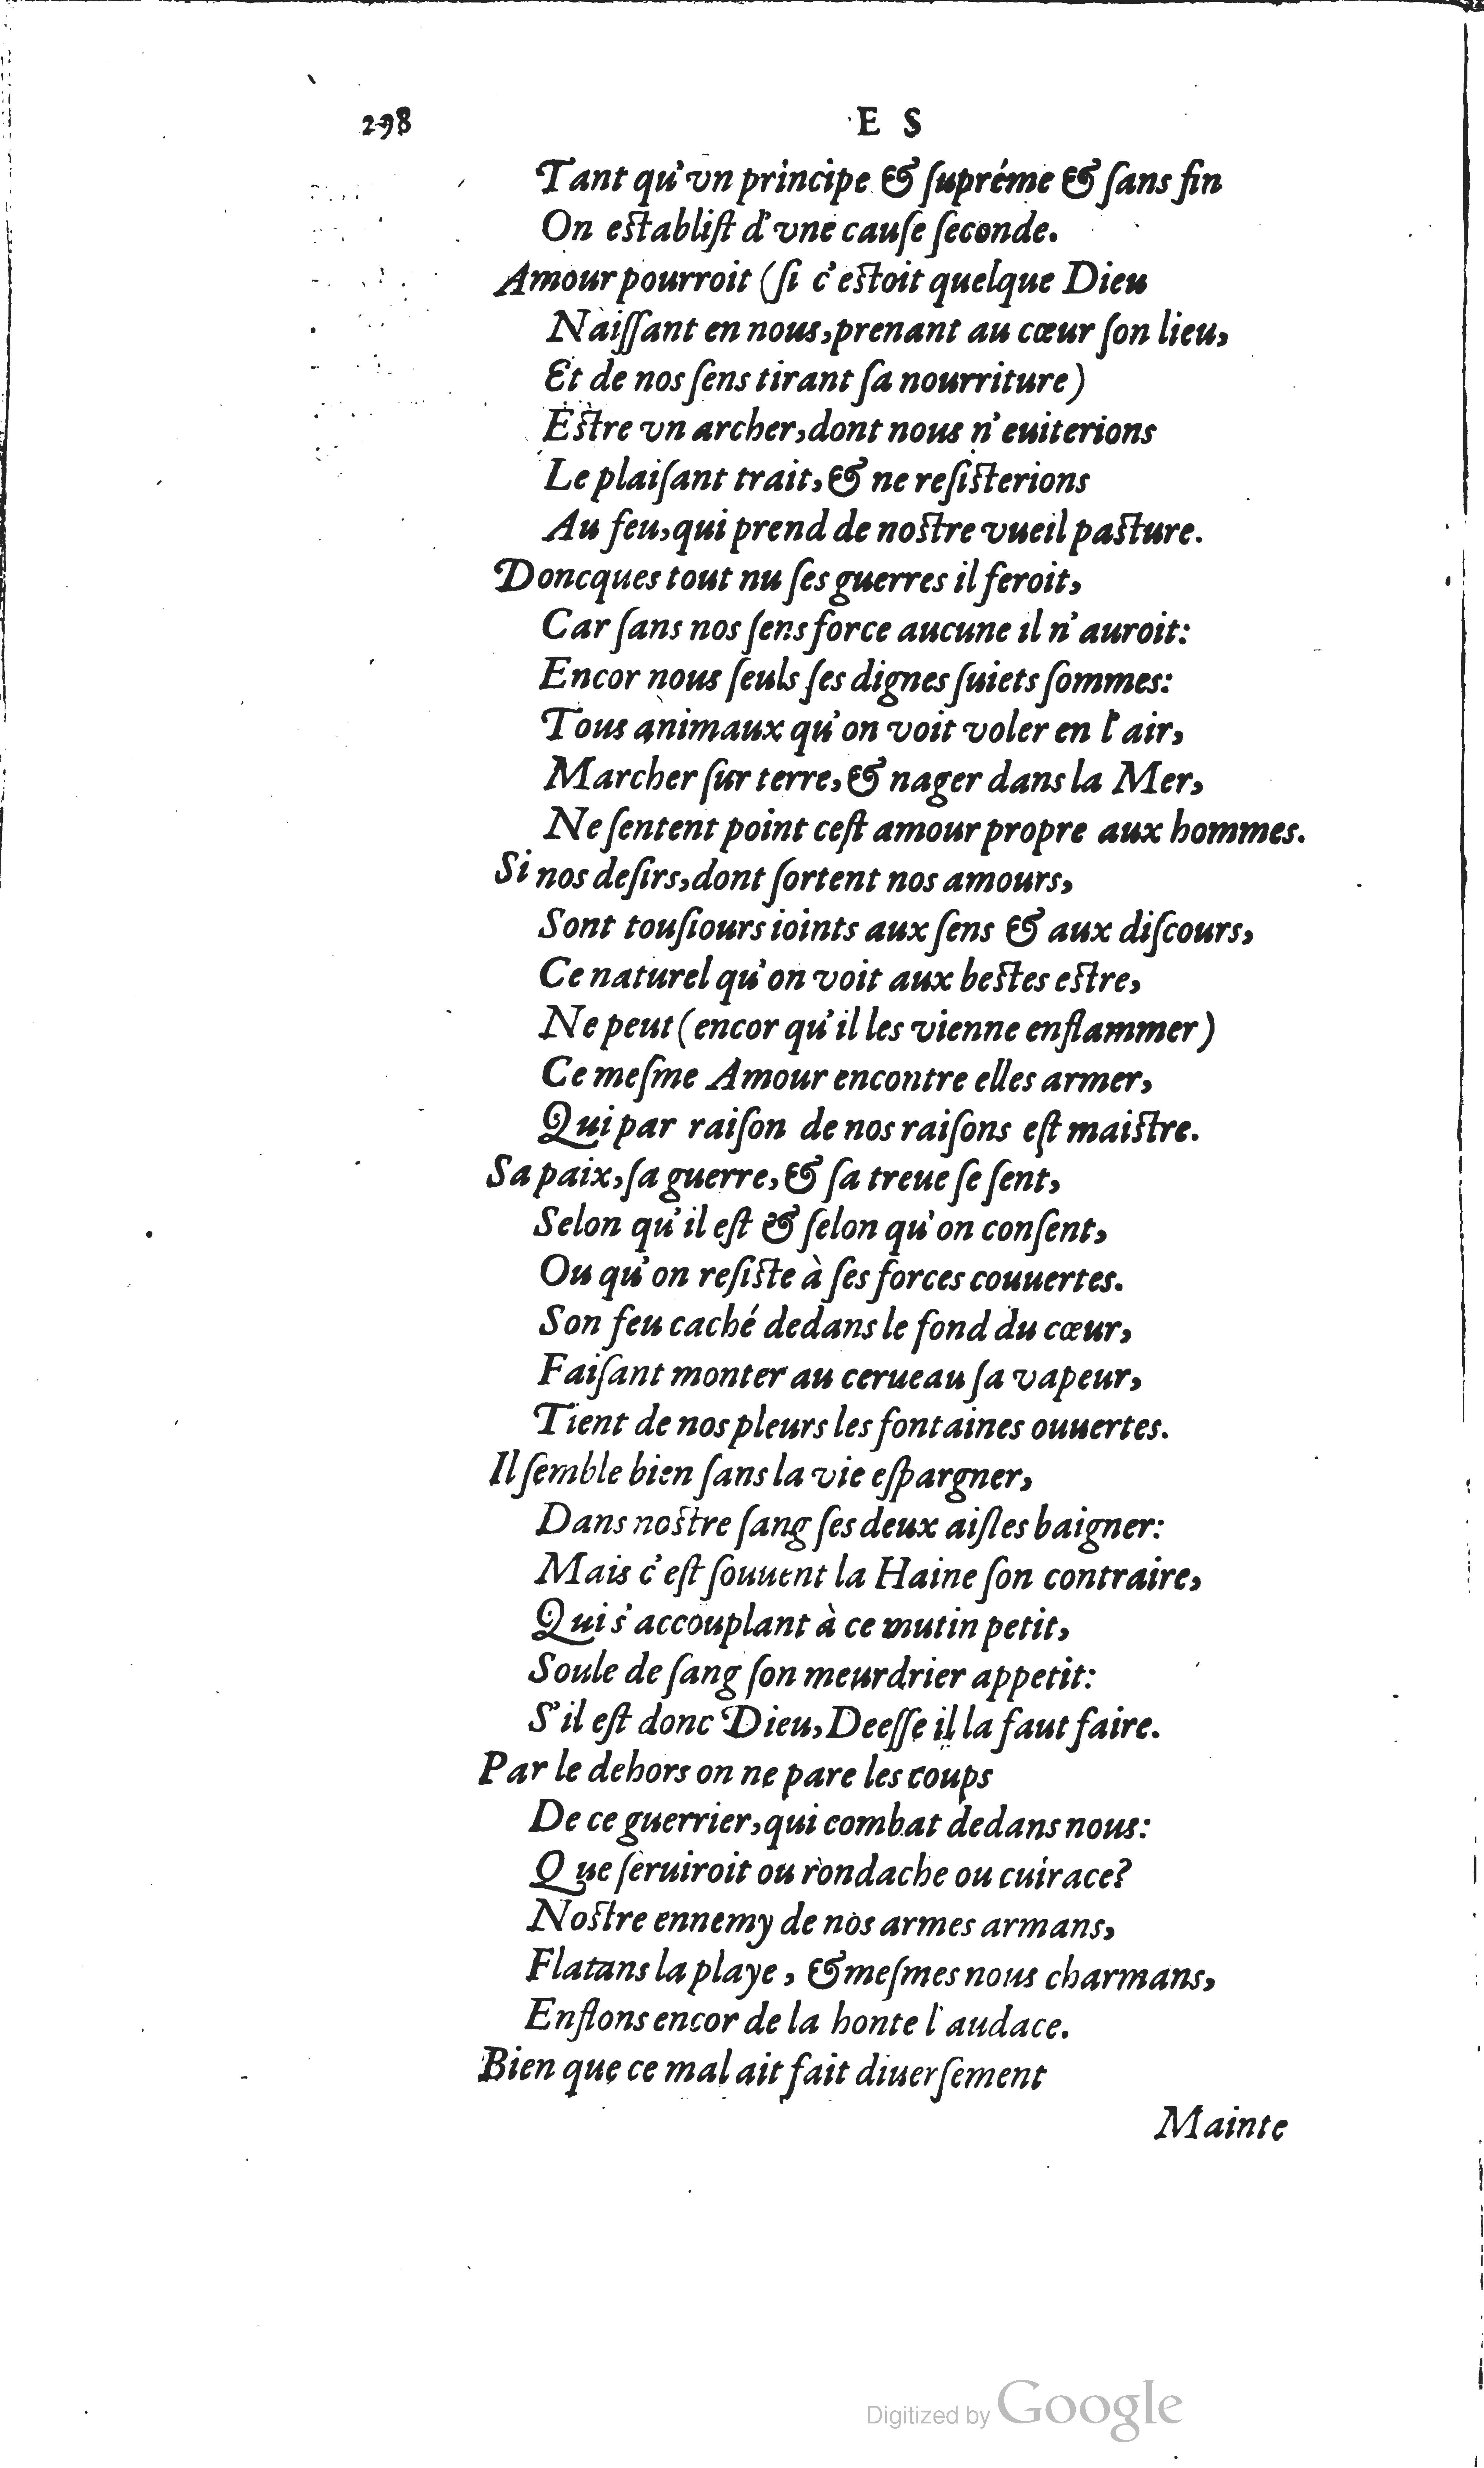 298 E S
Tant qu'vn principe & ſupréme & ſans fin
On establiſt d'vne cauſe ſeconde.
Amour pourroit (ſi c'estoit quelque Dieu
Naiſſant en nous, prenant au cœur ſon lieu,
Et de nos ſens tirant ſa nourriture)
Estre vn archer, dont nous n'euiterions
Le plaiſant trait, & ne reſisterions
Au feu, qui prend de nostre vueil pasture.
Doncques tout nu ſes guerres il feroit,
Car ſans nos ſens force aucune il n'auroit:
Encor nous ſeuls ſes dignes ſuiets ſommes:
Tous animaux qu'on voit voler en l'air,
Marcher ſur terre, & nager dans la Mer,
Ne ſentent point ceſt amour propre aux hommes.
Si nos deſirs, dont ſortent nos amours,
Sont touſiours ioints aux ſens & aux diſcours,
Ce naturel qu'on voit aux bestes estre,
Ne peut (encor qu'il les vienne enflammer)
Ce meſme Amour encontre elles armer,
Qui par raiſon de nos raiſons eſt maistre.
Sa paix, ſa guerre, & ſa treue ſe ſent,
Selon qu'il eſt & ſelon qu'on conſent,
Ou qu'on reſiste à ſes forces couuertes.
Son feu caché dedans le fond du cœur,
Faiſant monter au cerueau ſa vapeur,
Tient de nos pleurs les fontaines ouuertes.
Il ſemble bien ſans la vie eſpargner,
Dans nostre ſang ſes deux aiſles baigner:
Mais c'eſt ſouuent la Haine ſon contraire,
Qui s'accouplant à ce mutin petit,
Soule de ſang ſon meurdrier appetit:
S'il eſt donc Dieu, Deeſſe il la faut faire.
Par le dehors on ne pare les coups
De ce guerrier, qui combat dedans nous:
Que ſeruiroit ou rondache ou cuirace?
Nostre ennemy de nos armes armans,
Flatans la playe, & meſmes nous charmans,
Enflons encor de la honte l'audace.
Bien que ce mal ait fait diuerſement
Mainte
Digitized by Google